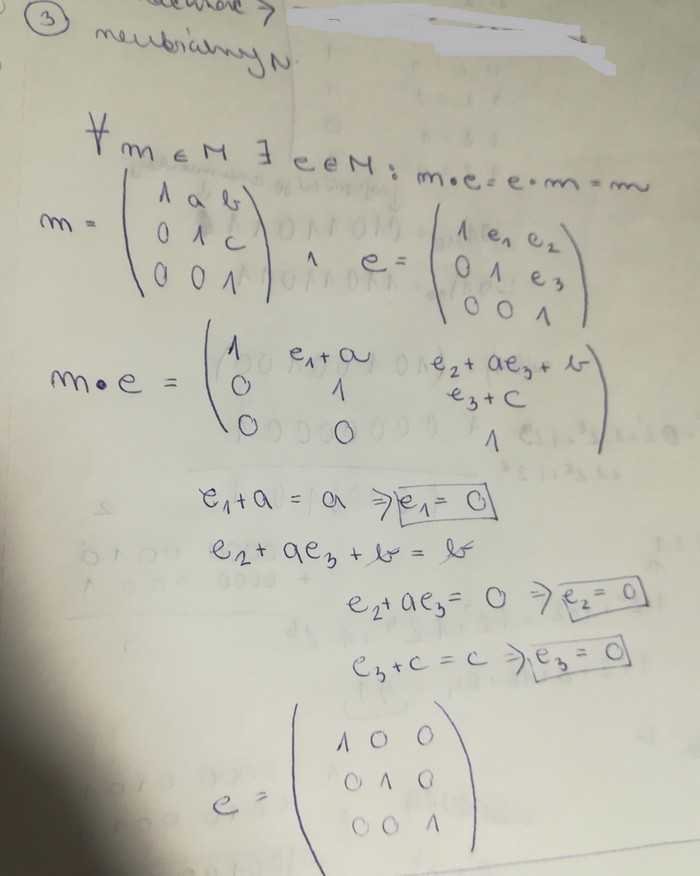 ③
neutrálny N
∀ m ∈ M ∃ e ∈ M : m • e = e • m = m
m = ( 1 a b , e = ( 1 e₁ e₂
0 1 c 0 1 e₃
0 0 1 ) 0 0 1 )
m • e = ( 1 e₁+a e₂ + ae₃ + b
0 1 e₃ + c
0 0 1 )
e₁+a = a ⇒ e₁ = 0
e₂ + ae₃ + b = b
e₂+ ae₃ = 0 ⇒ e₂ = 0
e₃ + c = c ⇒ e₃ = 0
e = ( 1 0 0
0 1 0
0 0 1 )